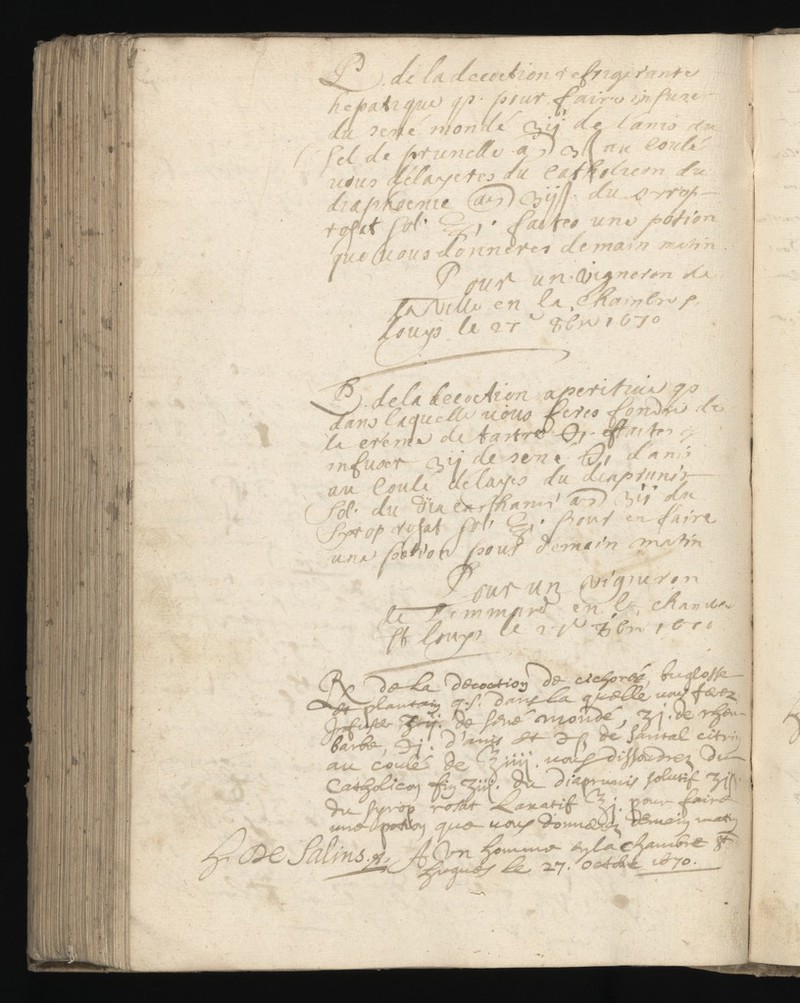 ℞. de la decoction refrigerante
hepatique qs. pour faire infuser
du sené mondé ʒij de l'anis
sel de prunelle aã au coulé
vous délayeres du Catholicon du
diaphoenic aã ʒijß. du syrop
rosat sol. ℥j. faites une potion
que vous donneres demain matin.
Pour un vigneron de
la ville en la chambre
Louys le 27e 8bre 1670
℞. de la decoction aperitive qs
dans laquelle vous feres fondre de
la crème de tartre ℈j. faites
infuser ʒij de sene ℈j d'anis
au coulé delayes du diaprunis
sol. du diacarthami aã ʒij du
syrop rosat sol. ℥j. pour en faire
une potion pour demain matin
Pour un vigneron
de Pommard en la chambre
St Louys le 8bre 1670
℞ de la decoction de cichorée, buglosse
et plantain q.s. dans la quelle vous ferez
infuser ʒij. de sené mondé, ʒj. de rheu-
barbe, ℈j. d'anis et de santal citrin
au coulé de ℥iiij. vous dissoudrez du
Catholicon fin ʒiij. du diaprunis solutif
du syrop rosat laxatif ℥j. pour faire
une potion que vous donnerez demain matin
H. De Salins. A Un homme en la chambre St
Hugues le 27. octobre 1670.